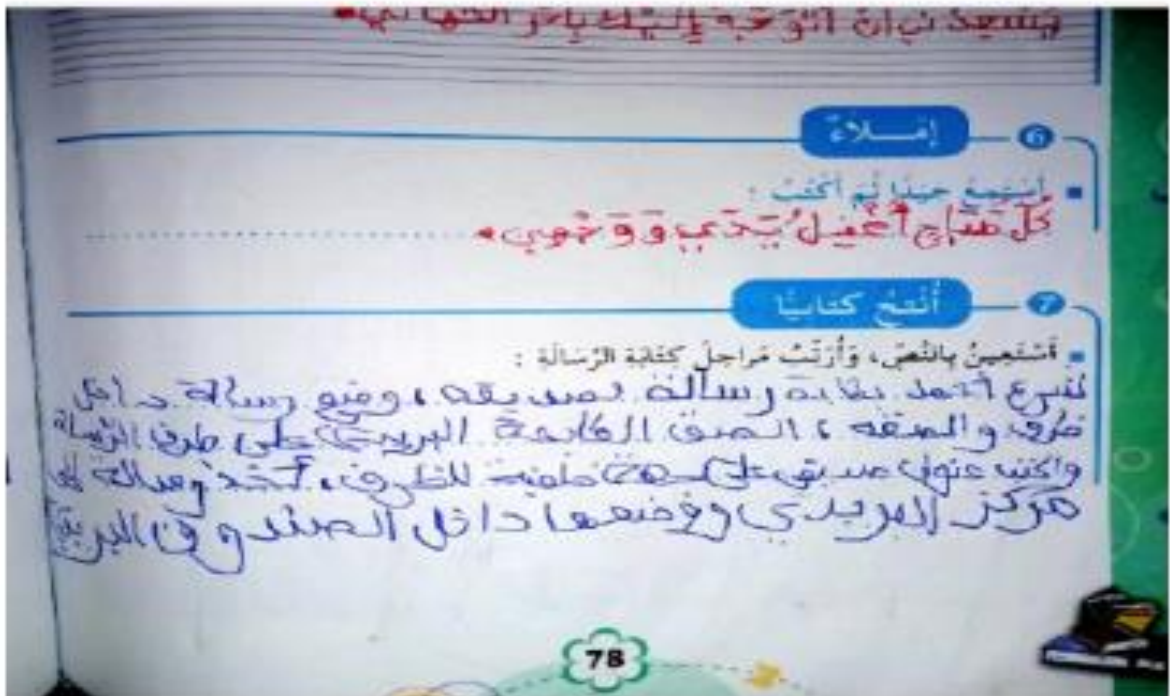 يسعدني أن أتوجه إليك بأحر التهاني.
6 إملاء
أستمع جيدا ثم أكتب :
كُلَّ صَبَاحٍ أَغْسِلُ يَدَيَّ وَوَجْهِي.
7 أُنْتِجُ كتابيًّا
أَسْتَعِينُ بِالنَّصِّ، وَأُرَتِّبُ مَراحِلَ كِتَابَةِ الرِّسَالَةِ :
أحمد رسالة لصديقه، وضع رسالة داخل
ظرف والصقه، الصق البريدي على ظرف الرسالة
واكتب عنوان صديق على خلفية للظرف،
مركز البريدي وضعها داخل الصندوق البريدي
78